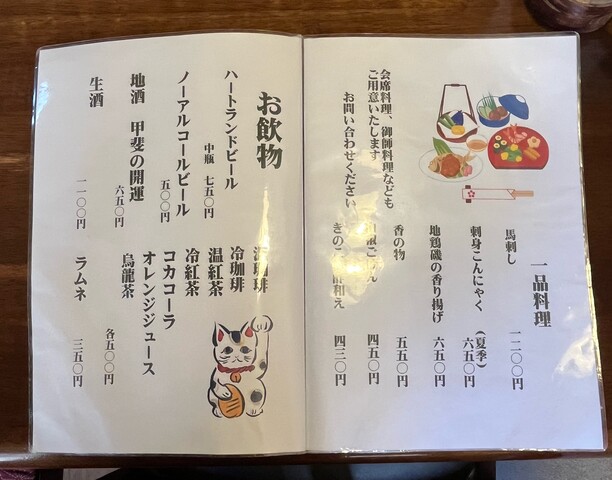 一品料理
馬刺し 一二〇〇円
刺身こんにゃく (夏季) 六五〇円
地鶏磯の香り揚げ 六五〇円
香の物 五五〇円
四五〇円
きのこ 和え 四三〇円
会席料理、御師料理なども
ご用意いたします
お問い合わせください
お飲物
ハートランドビール
中瓶 七五〇円
ノーアルコールビール
五〇〇円
地酒 甲斐の開運
六五〇円
生酒
一一〇〇円
温珈琲
冷珈琲
温紅茶
冷紅茶
コカコーラ
オレンジジュース
烏龍茶
各五〇〇円
ラムネ 三五〇円